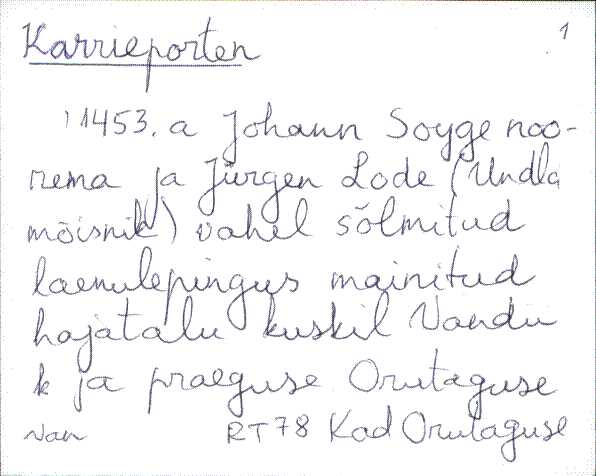 Karrieporten
1
1453. a Johann Soyge noo-
rema ja Jürgen Lode (Undla
mõisnik) vahel sõlmitud
laenulepingus mainitud
hajatalu kuskil Vandu
k ja praeguse Orutaguse
Van RT78 Kad Orutaguse